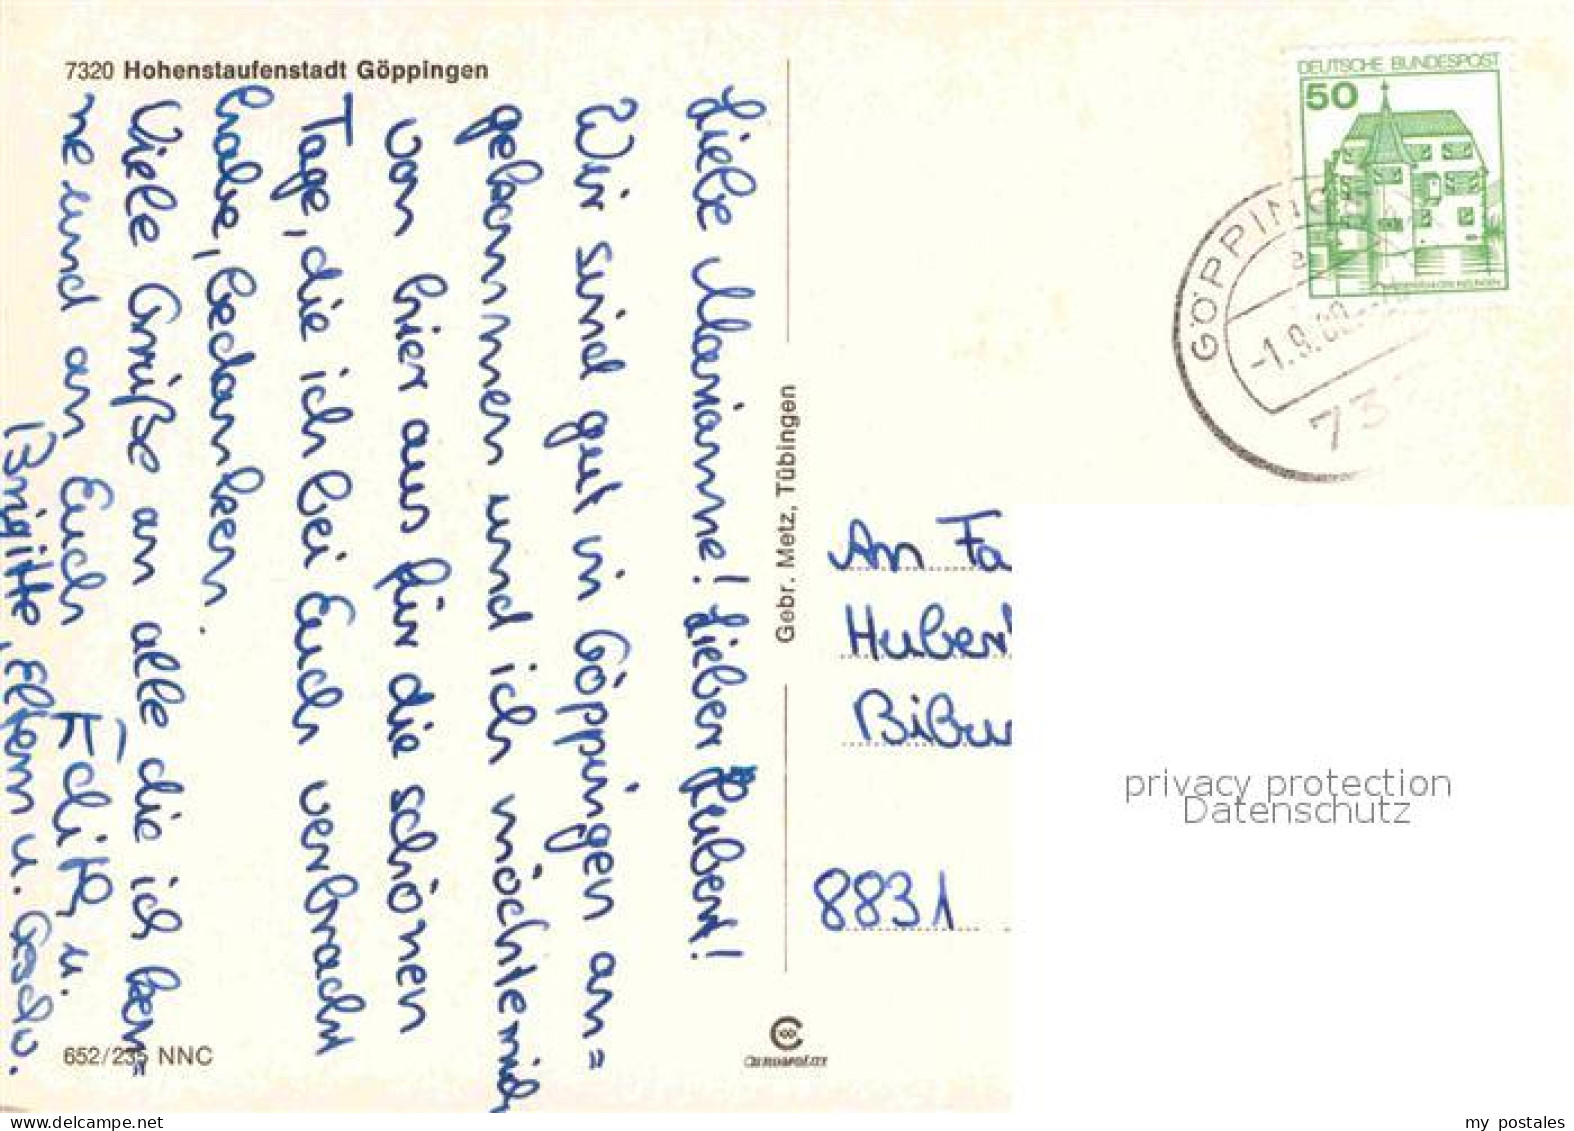 7320 Hohenstaufenstadt Göppingen
Liebe Marianne! Lieber Hubert!
Wir sind gut in Göppingen an=
gekommen und ich möchte mich
von hier aus für die schönen
Tage, die ich bei Euch verbracht
habe, bedanken.
Viele Grüße an alle die ich ken=
ne und an Euch
Edith u.
Brigitte, Eltern u. Geschw.
652/235 NNC
Gebr. Metz, Tübingen
DEUTSCHE BUNDESPOST
50
GÖPPING
-1.9.80
73
An Fa
Hubert
Bibur
8831
privacy protection
Datenschutz
my postales
delcampe.net